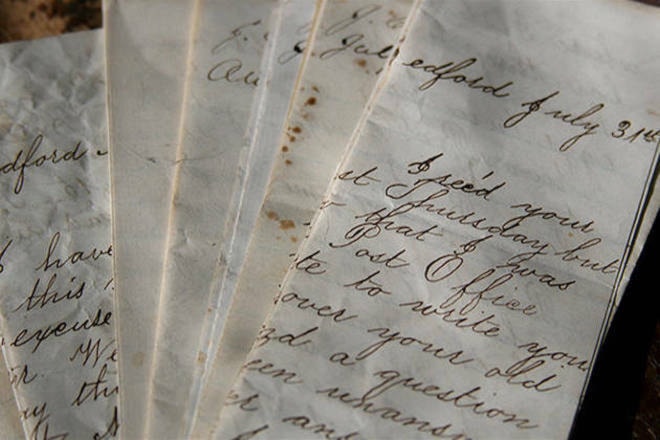 dford
have
this
excuse
We
Jul
edford July 31st
I rec'd your
st Thursday but
that I was
Post Office
te to write you
over your old
a question
een unans